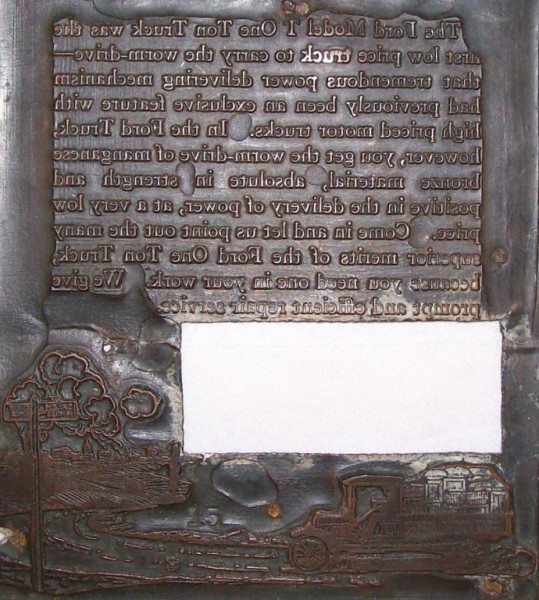 The Ford Model T One Ton Truck was the
first low price truck to carry the worm-drive—
that tremendous power delivering mechanism
had previously been an exclusive feature with
high priced motor trucks. In the Ford Truck,
however, you get the worm-drive of manganese
bronze material, absolute in strength and
positive in the delivery of power, at a very low
price. Come in and let us point out the many
superior merits of the Ford One Ton Truck,
because you need one in your work. We give
prompt and efficient repair service